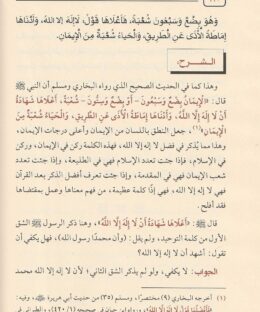 وَهُوَ بِضْعٌ وَسَبْعُونَ شُعْبَةً، فَأَعْلَاهَا قَوْلُ: لَا إِلَهَ إِلَّا اللهُ، وَأَدْنَاهَا
إِمَاطَةُ الْأَذَى عَنِ الطَّرِيقِ، وَالْحَيَاءُ شُعْبَةٌ مِنَ الْإِيمَانِ.
الشرح:
وهذا كما في الحديث الصحيح الذي رواه البخاري ومسلم أن النبي ﷺ
قال: «الْإِيمَانُ بِضْعٌ وَسَبْعُونَ - أَوْ بِضْعٌ وَسِتُّونَ - شُعْبَةً، أَعْلَاهَا شَهَادَةُ
أَنْ لَا إِلَهَ إِلَّا اللهُ، وَأَدْنَاهَا إِمَاطَةُ الْأَذَى عَنِ الطَّرِيقِ، وَالْحَيَاءُ شُعْبَةٌ مِنَ
الْإِيمَانِ»(١)، جعل النطق باللسان من الإيمان وأعلى درجات الإيمان،
وهذا مما يُذكر في فضل لا إله إلا الله، فهذه الكلمة ركن في الإيمان، وركن
في الإسلام، فإذا جئت تعدد الإسلام فهي في الطليعة، وإذا جئت تعدد
شعب الإيمان فهي كذلك، وإذا جئت تعرف أفضل الذكر بعد القرآن
فهي لا إله إلا الله، فهي إذًا كلمة عظيمة، من فهم معناها وعمل بمقتضاها
فقد أفلح.
قال ﷺ: «أَعْلَاهَا شَهَادَةُ أَنْ لَا إِلَهَ إِلَّا اللهُ»، وهنا ذكر الرسول ﷺ الشق
الأول من كلمة التوحيد، ولم يقل: (وأن محمدًا رسول الله)، فهل يكفي أن
تقول: أشهد أن لا إله إلا الله؟
الجواب: لا يكفي، ولو لم يذكر الشق الثاني؛ لأن لا إله إلا الله محمد
(١) أخرجه البخاري (٩) مختصرًا، ومسلم (٣٥) من حديث أبي هريرة ﷺ، وفيه: